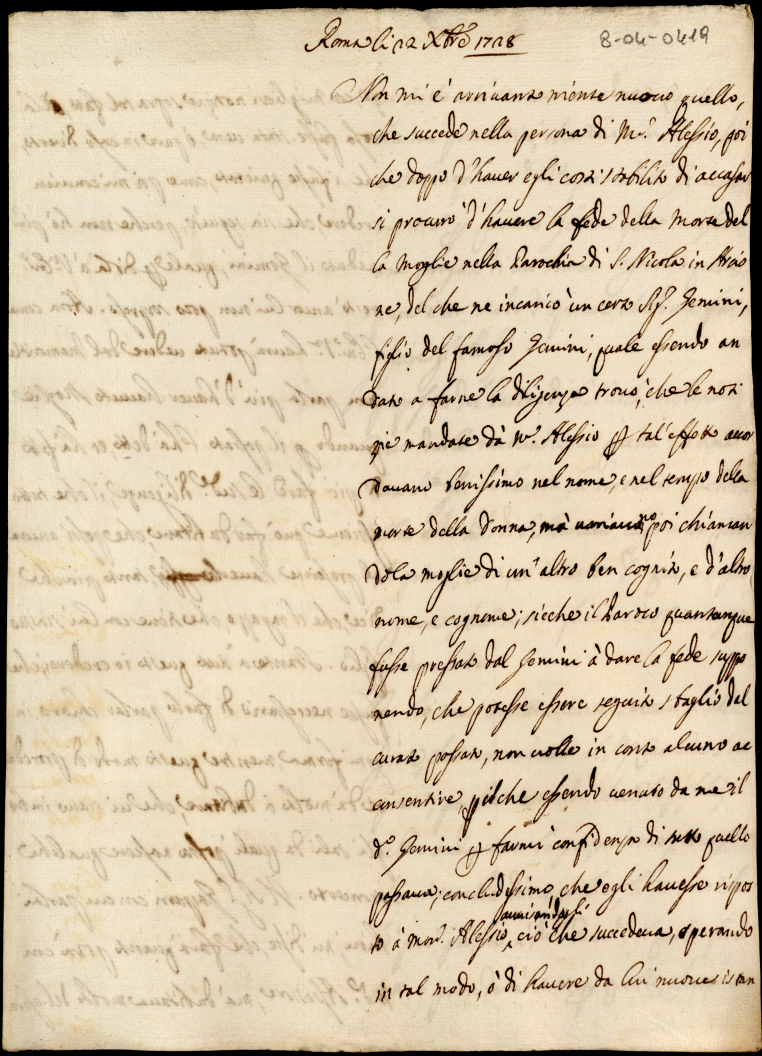 Roma li 22 Xbre 1728
8-04-0419
Non mi è arrivante niente nuovo quello,
che succede nella persona di Mr. Alessio, poi
che doppo d'haver egli costì stabilito di accasar
si procurò d'havere la fede della morte del
la moglie nella Parochia di S. Nicola in Arcio
ne, del che ne incaricò un certo Sigr. Gemini,
figlio del famoso Gemini, quale essendo an
dato a farne la diligenza trovò, che le noti
zie mandate dà Mr. Alessio per tal' effetto accor
davano benissimo nel nome, e nel tempo della
morte della Donna, mà variavano poi chiaman
dola moglie di un' altro ben cognito, e d'altro
nome, e cognome; sicche il Paroco quantunque
fusse pressato dal Gemini à dare la fede suppo
nendo, che potesse essere seguito sbaglio dal
curato passato, non volle in conto alcuno ac
consentire, il che essendo venuto da me il
do. Gemini per farmi confidenza di tutto quello
passava; concludessimo, che egli havesse rispos
to à monr. Alessio avvisandogli ciò che succedeva, sperando
in tal modo, ò di havere da lui nuove istan